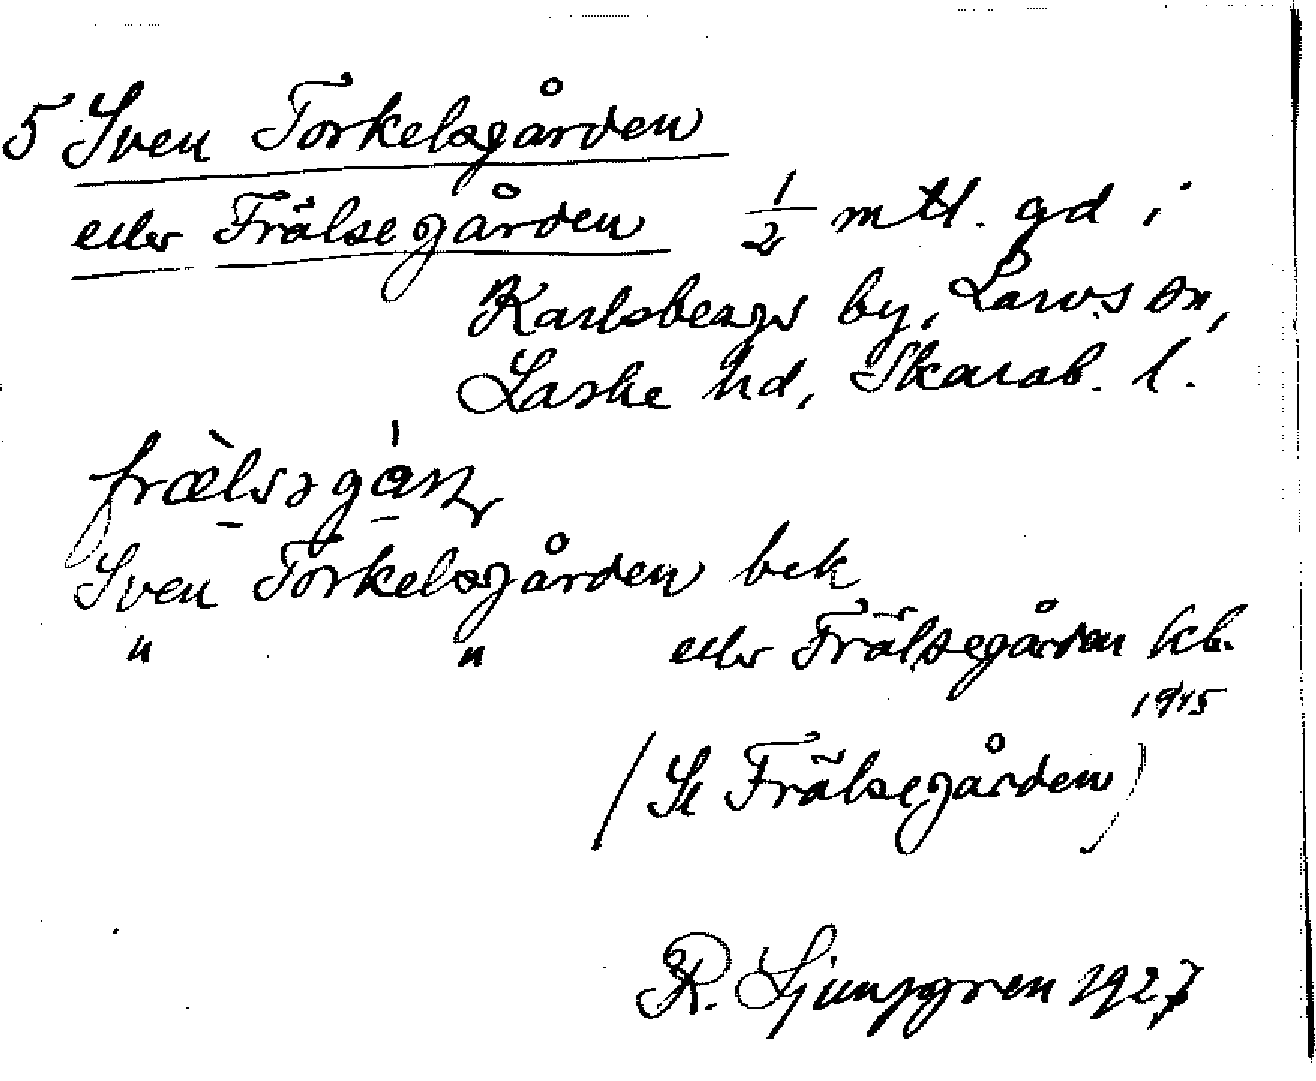 5 Sven Torkelsgården
eller Frälsegården 1/2 mtl. gd i
Karlsbergs by, Larvs sn,
Laske hd, Skarab. l.
Sven Torkelsgården bek
" " eller Frälsegården kb.
1915
(St Frälsegården)
R. Ljunggren 1927